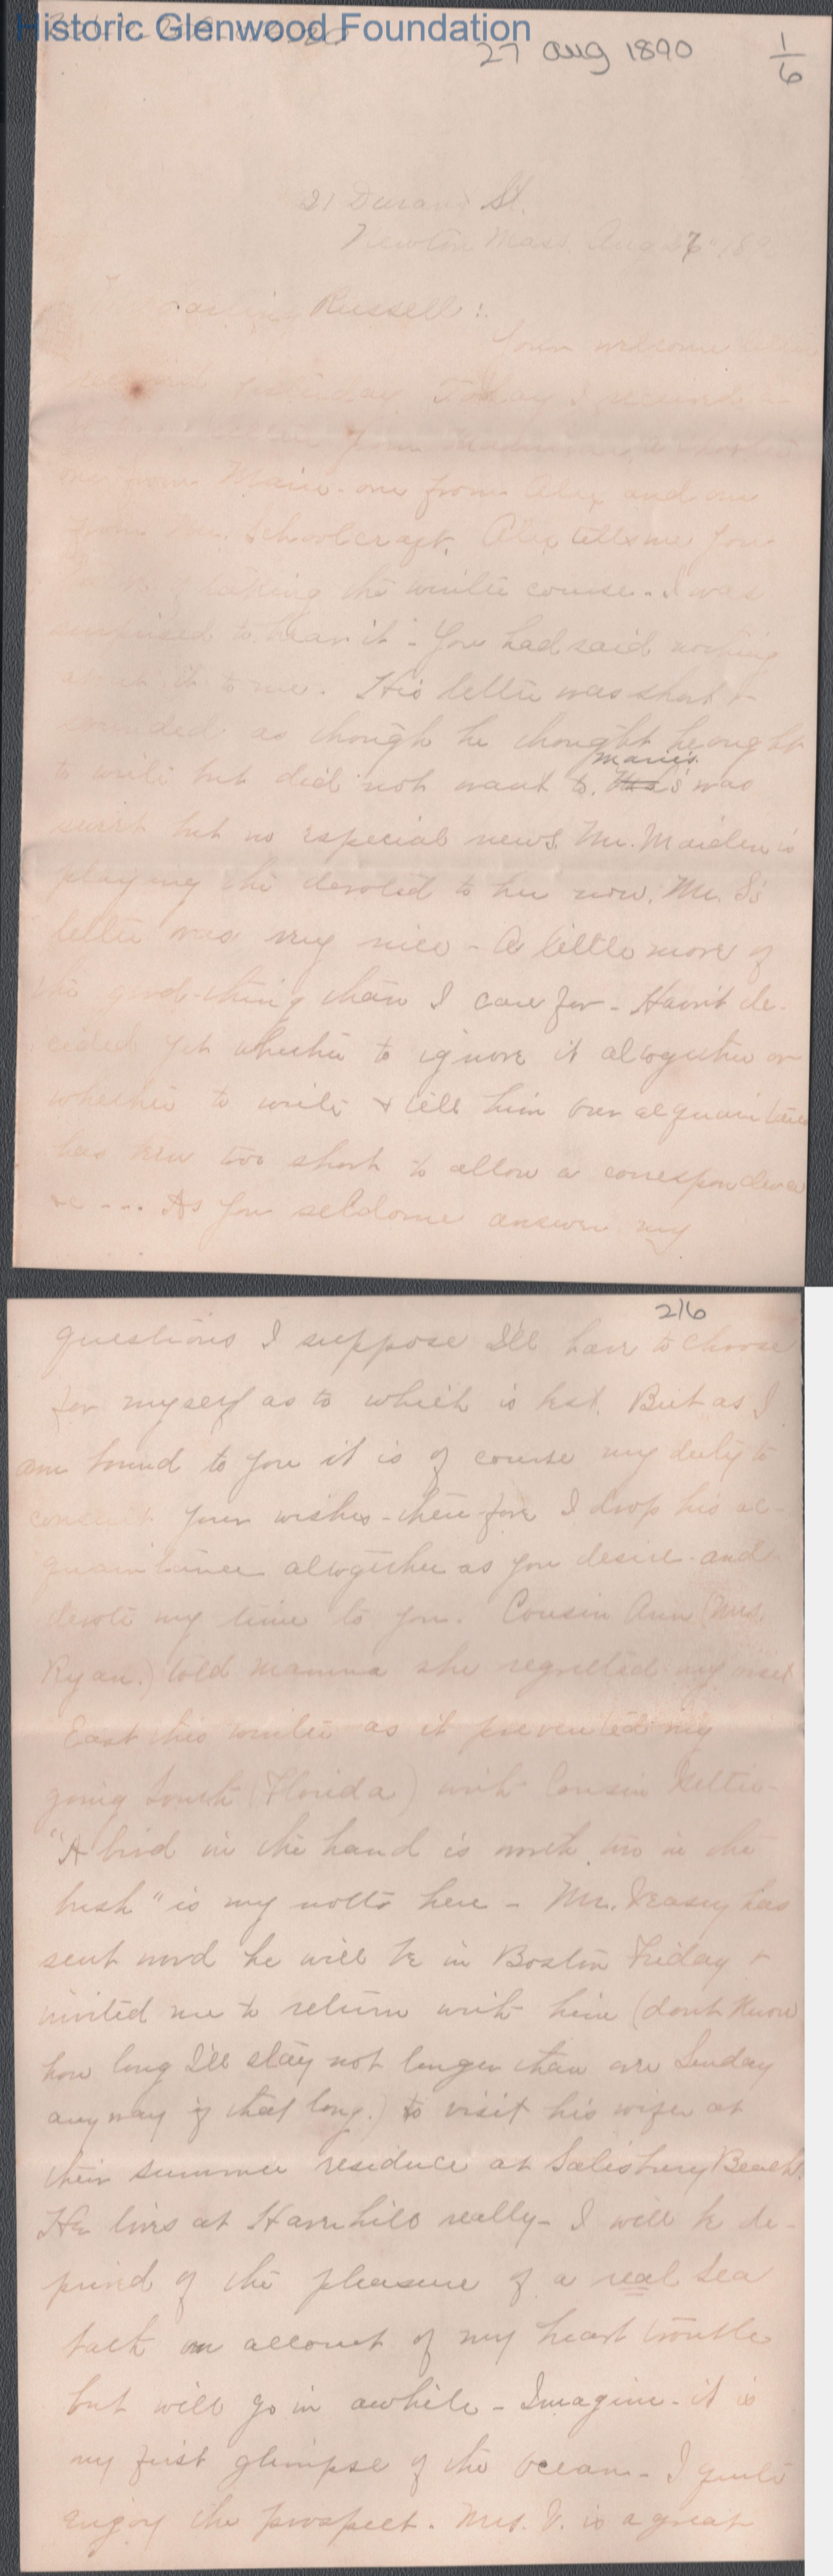 Historic Glenwood Foundation
27 Aug 1890
1/6
21 Durant St.
Newton Mass. Aug 27" 189
Russell:
Your welcome letter
received yesterday. Today I received
from Mamma,
one from Marie - one from Alex and one
from Mr. Schoolcraft. Alex tells me you
taking the winter course - I was
surprised to hear it - You had said nothing
about it to me. His letter was short &
sounded as though he thought he ought
to write but did not want to. Marie's was
sweet but no especial news. Mr. Maiden is
playing the devoted to her now. Mr. S's
letter was very nice - A little more of
the good-thing than I care for - Havn't de-
cided yet whether to ignore it altogether or
whether to write & tell him our acquaintance
has been too short to allow a correspondence
&c --- As you seldome answer my
2/6
questions I suppose I'll have to choose
for myself as to which is best. But as I
am bound to you it is of course my duty to
consult your wishes - therefore I drop his ac-
quaintance altogether as you desire - and
devote my time to you. Cousin Ann (Mrs.
Ryan.) told Mamma she regretted my visit
East this winter as it prevented my
going South (Florida) with Cousin Nettie -
"A bird in the hand is worth two in the
bush" is my motto here - Mr. Veasey has
sent word he will be in Boston Friday &
invited me to return with him (dont know
how long I'll stay not longer than over Sunday
anyway if that long.) to visit his wife at
their summer residence at Salisbury Beach.
He lives at Havrehill really - I will be de-
prived of the pleasure of a real sea
bath on account of my heart trouble
but will go in awhile - Imagine - it is
my first glimpse of the ocean - I quite
enjoy the prospect. Mrs. V. is a great